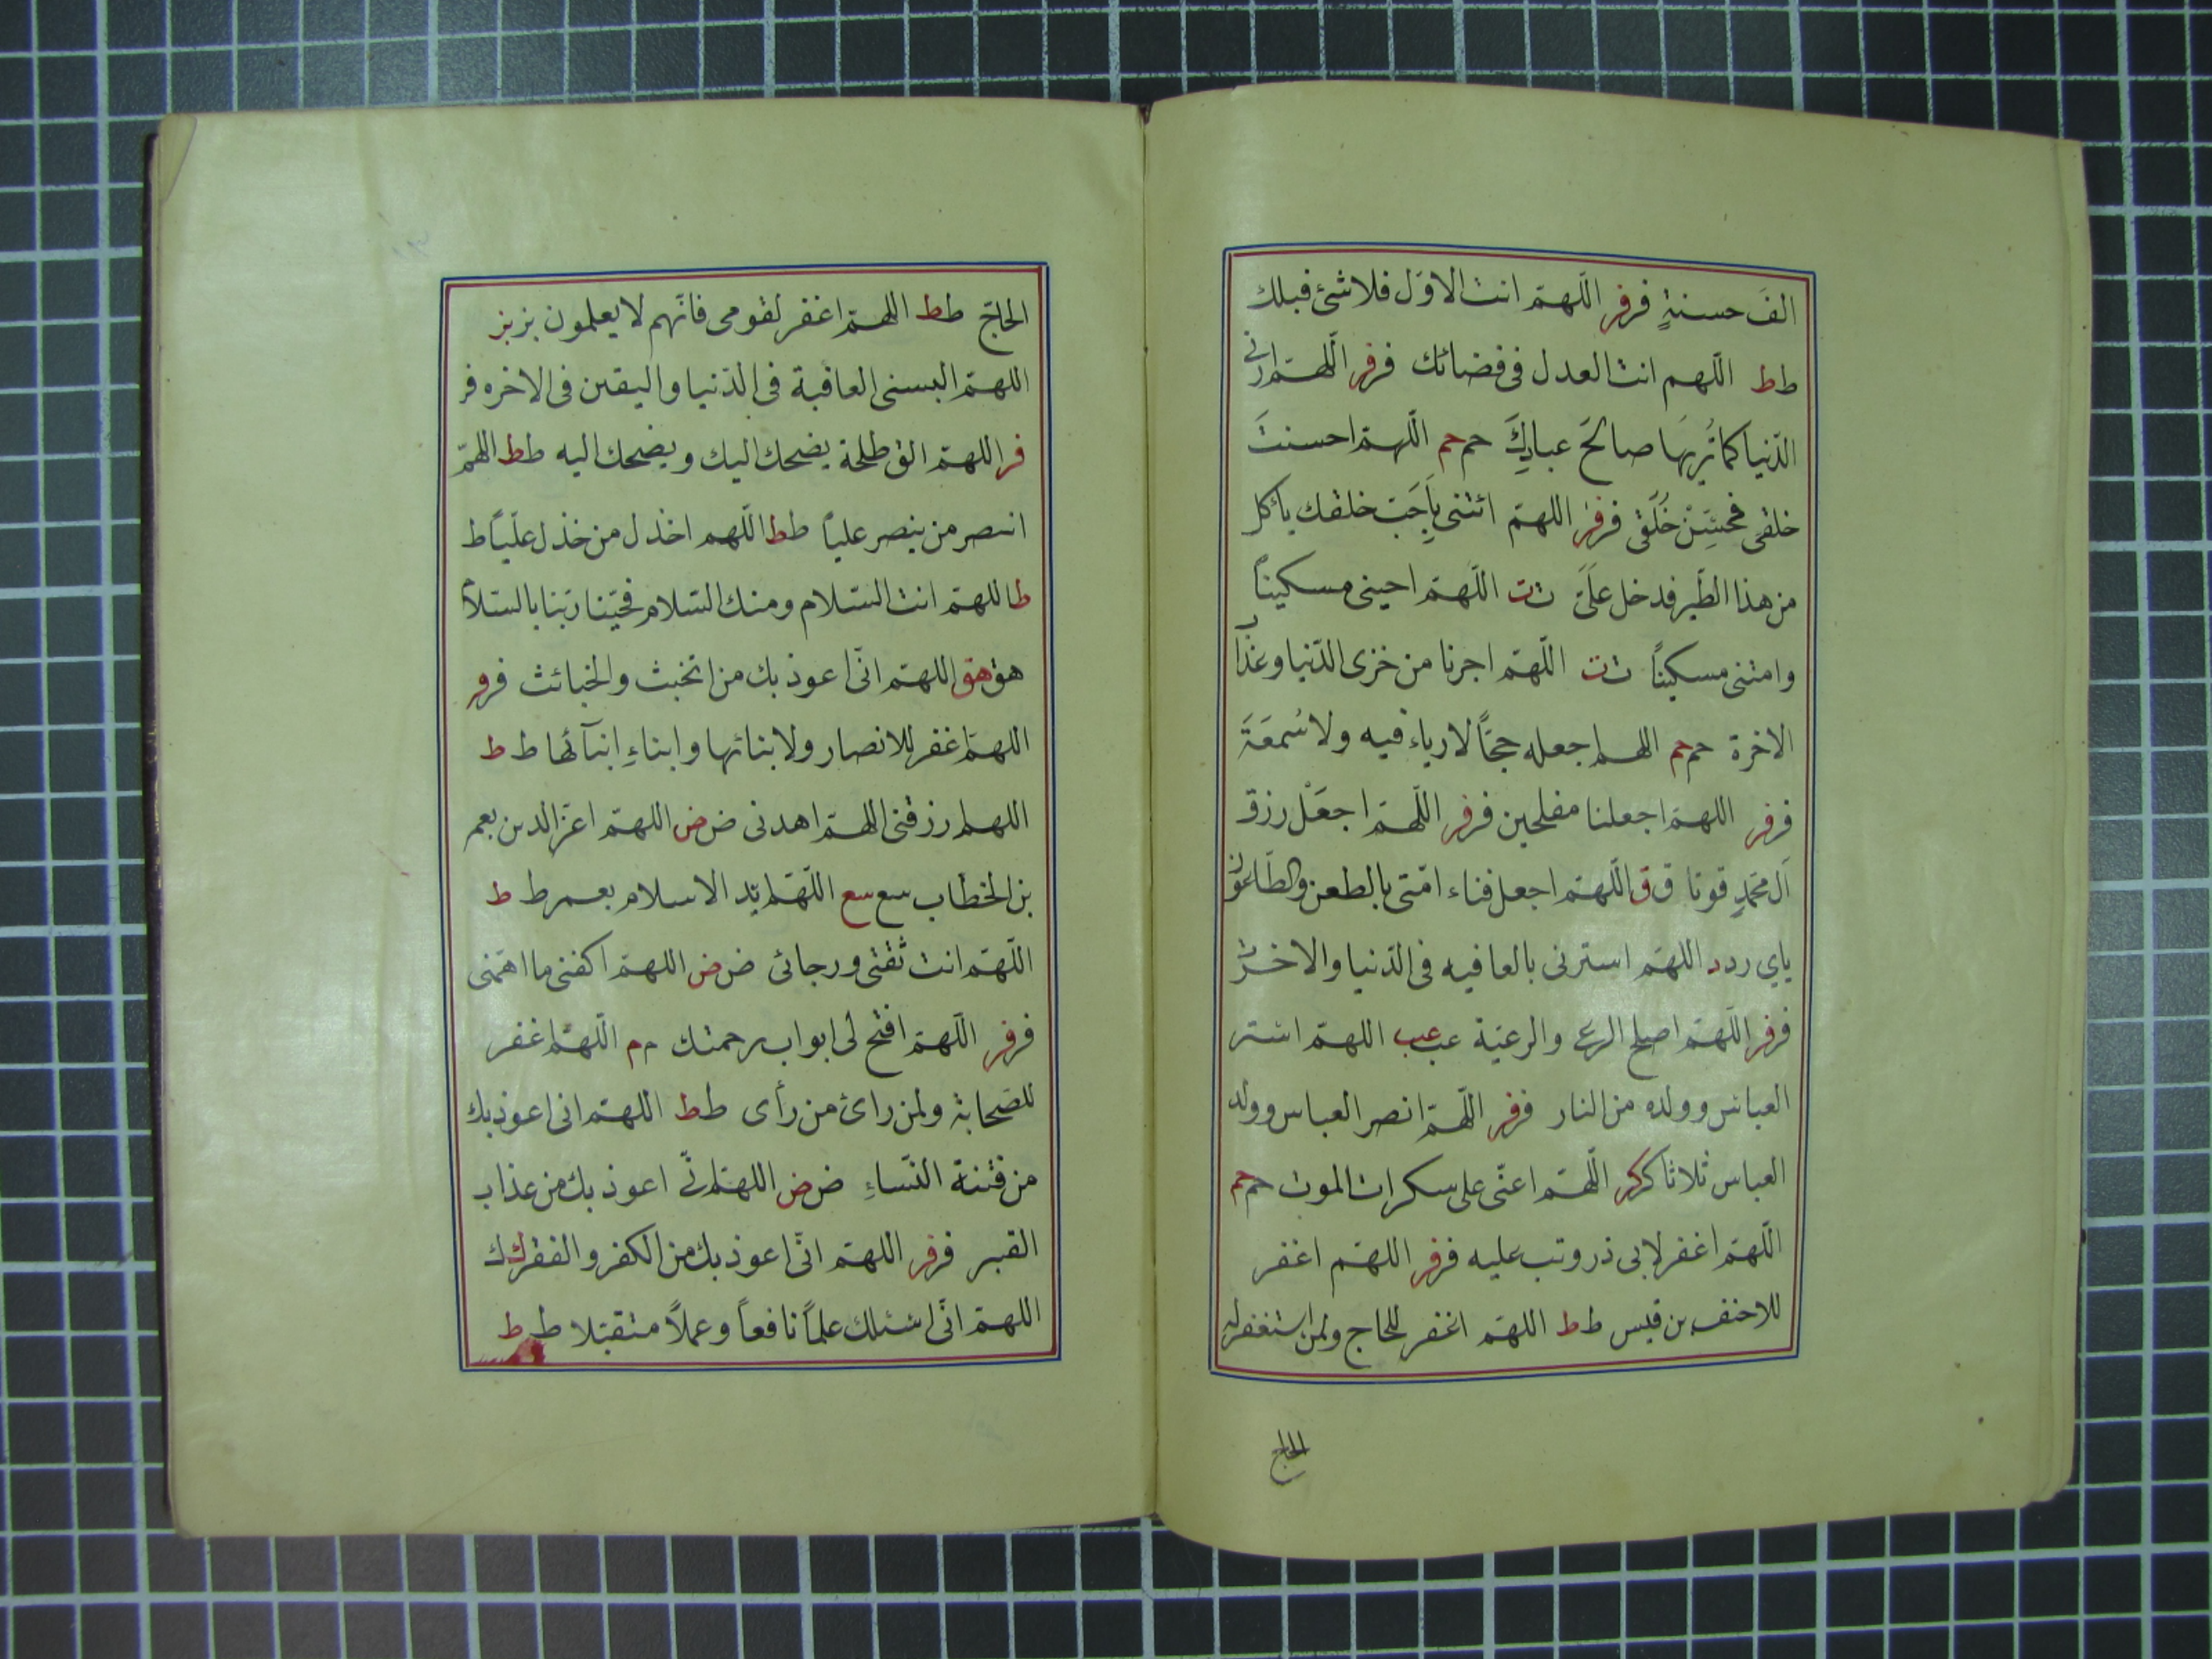 الفَ حسنةٍ فر فر اللّهمّ انت الاوّل فلا شئ قبلك
ط ط اللّهم انت العدل فى قضائك فر فر اللّهمّ ارنى
الدّنيا كما تُريهَا صالحَ عبادِكَ حم حم اللّهمّ احسنتَ
خلقى فحسِّنْ خُلَقى فر فر اللهمّ ائتنى بِاَحَبّ خلقك ياكل
من هذا الطّير فدخل علَىّ ت ت اللّهمّ احينى مسكيناً
وامتنى مسكيناً ت ت اللّهمّ اجرنا من خزى الدّنيا وعذاب
الاخرة حم حم اللهم اجعله حجّاً لا رياء فيه ولا سُمعَةَ
فر فر اللهمّ اجعلنا مفلحين فر فر اللّهمّ اجعَلْ رزق
آل محمّدٍ قوتا ق ق اللّهمّ اجعل فناء امّتى بالطعن والطّاعون
ياي ر د د اللهمّ استرنى بالعافيه فى الدّنيا والاخرة
فر فر اللّهمّ اصلح الرعى والرعيّة عب عب اللهمّ استر
العباس وولده من النار فر فر اللّهمّ انصر العباس وولد
العباس ثلاثا كر كر اللّهمّ اعنّى على سكرات الموت حم حم
اللّهمّ اغفر لابى ذر وتب عليه فر فر اللهمّ اغفر
للاحنف بن قيس ط ط اللهمّ اغفر للحاج ولمن استغفر له
الحاج
الحاجّ ط ط اللهمّ اغفر لقومى فانّهم لا يعلمون بز بز
اللهمّ البسنى العافية فى الدّنيا واليقين فى الاخره فر
فر اللهمّ الق طلحة يضحك اليك ويضحك اليه ط ط اللهمّ
انصر من ينصر علياً ط ط اللّهم اخذل من خذل عليّاً ط
ط اللهمّ انت السّلام ومنك السّلام فحيّنا ربّنا بالسّلام
هق هق اللهمّ انّى اعوذ بك من الخبث والخبائث فر فر
اللهمّ اغفر للانصار ولابنائها وابناءِ ابنآئها ط ط
اللهم ارزقنى اللهمّ اهدنى ض ض اللهمّ اعزّ الدين بعمر
بن الخطاب سع سع اللّهمّ ايّد الاسلام بعمر ط ط
اللّهمّ انت ثقتى ورجائى ض ض اللهمّ اكفنى ما اهمّنى
فر فر اللّهمّ افتح لى ابواب رحمتك م م اللّهمّ اغفر
للصّحابة ولمن رائ من رأى ط ط اللهمّ انى اعوذ بك
من فتنة النّساءِ ض ض اللهمّ انّى اعوذ بك من عذاب
القبر فر فر اللهمّ انّى اعوذ بك من الكفر والفقر ك ك
اللهمّ انّى اسئلك علماً نافعاً وعملاً متقبّلا ط ط